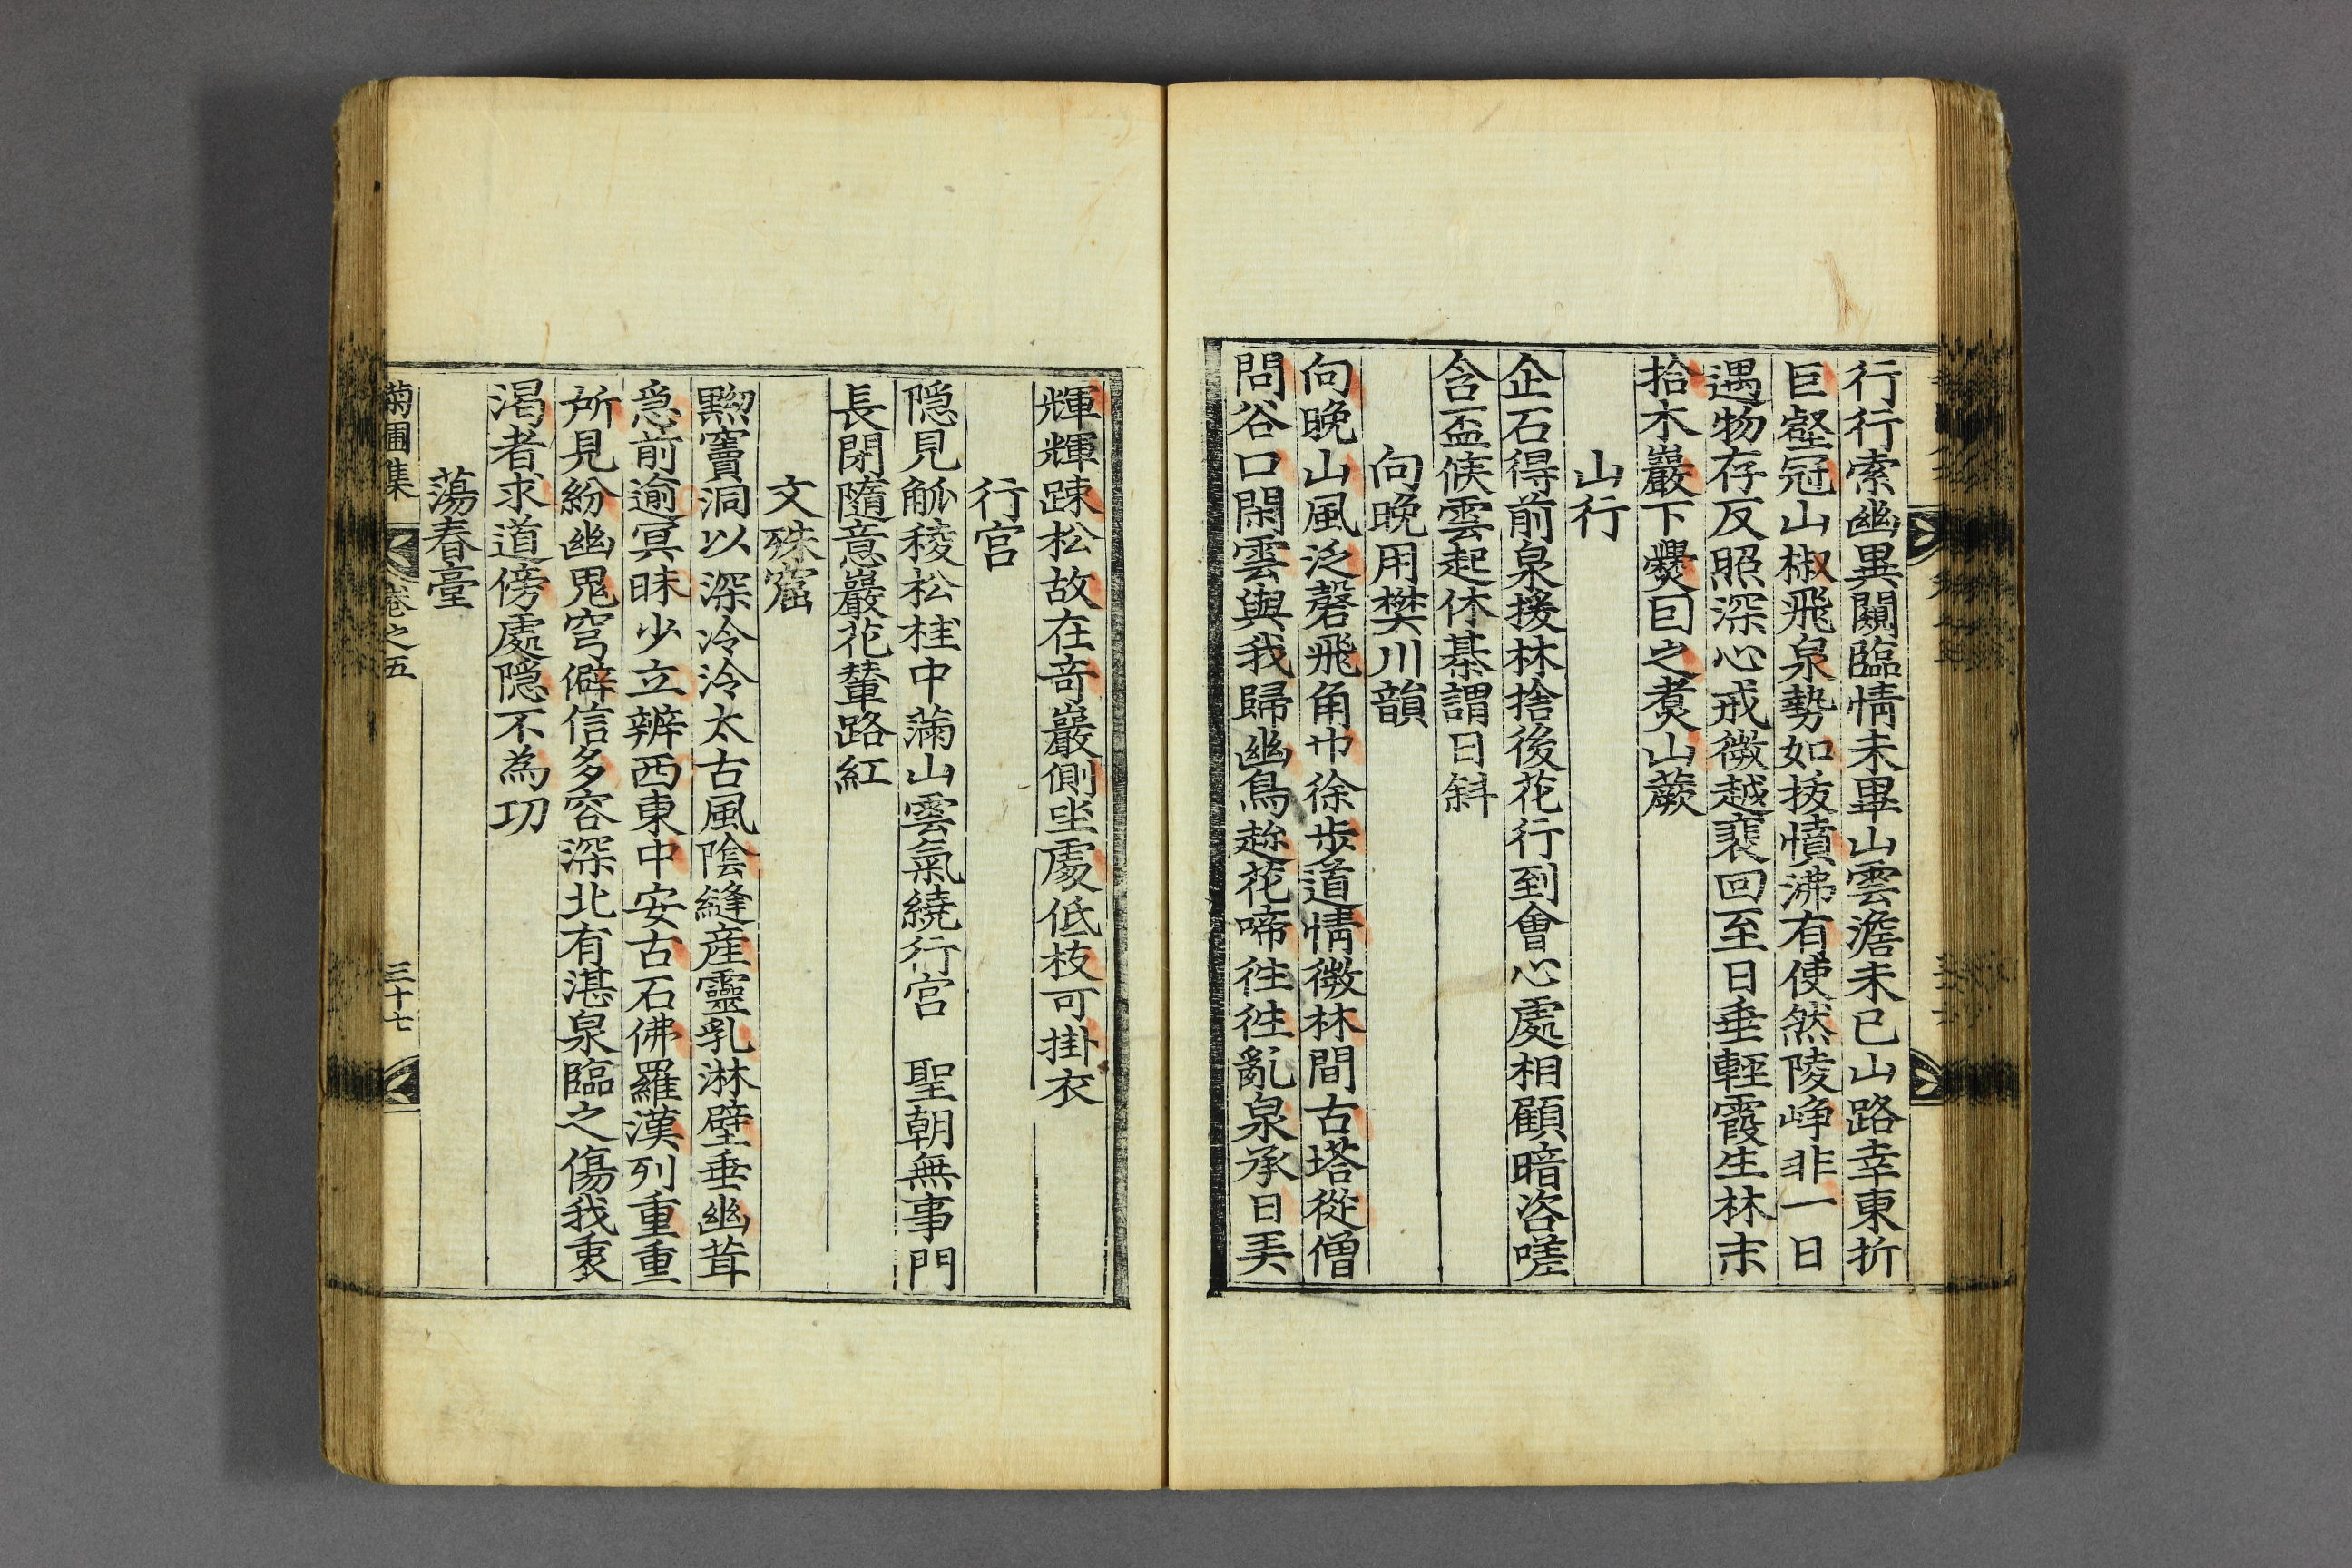 行行索幽異闕臨情未畢山雲澹未已山路幸東折
巨壑冠山椒飛泉勢如拔憤沸有使然陵崢非一日
遇物存反照深心戒微越裴回至日垂輕霞生林末
拾木巖下爨曰之煑山蕨
山行
企石得前泉援林捨後花行到會心處相顧暗咨嗟
含盃候雲起休棊謂日斜
向晚用樊川韻
向晚山風泛磬飛角巾徐步道情微林間古塔從僧
問谷口閑雲與我歸幽鳥趂花啼徃徃亂泉承日美
輝輝踈松故在奇巖側坐處低枝可掛衣
行宮
隠見觚稜松桂中滿山雲氣繞行宮 聖朝無事門
長閉隨意巖花輦路紅
文殊窟
黝竇洞以深冷泠太古風陰縫産靈乳淋壁垂幽茸
急前逾冥昧少立辨西東中安古石佛羅漢列重重
所見紛幽鬼穹僻信多容深北有湛泉臨之傷我衷
渴者求道傍處隠不為功
蕩春臺
菊圃集 卷之五 三十七